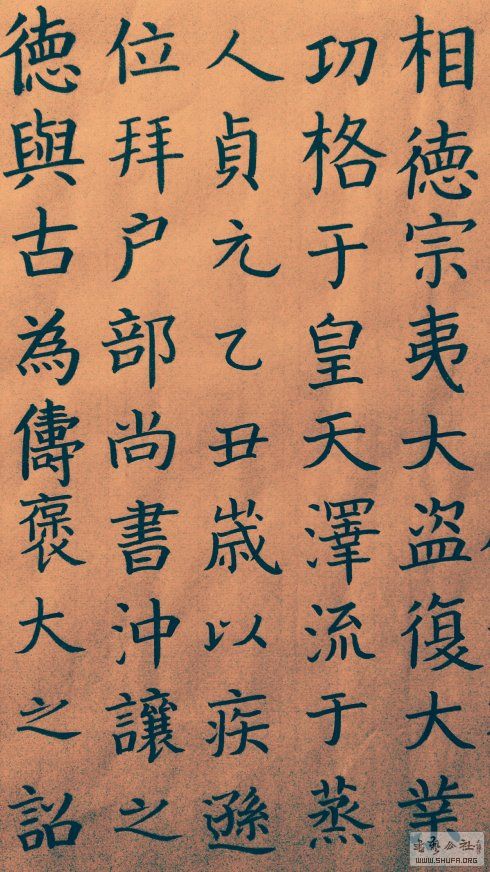 相德宗夷大盗復大業
功格于皇天澤流于蒸
人貞元乙丑歲以疾遜
位拜户部尚書沖讓之
德與古為儔褒大之詔
WWW.SHUFA.ORG